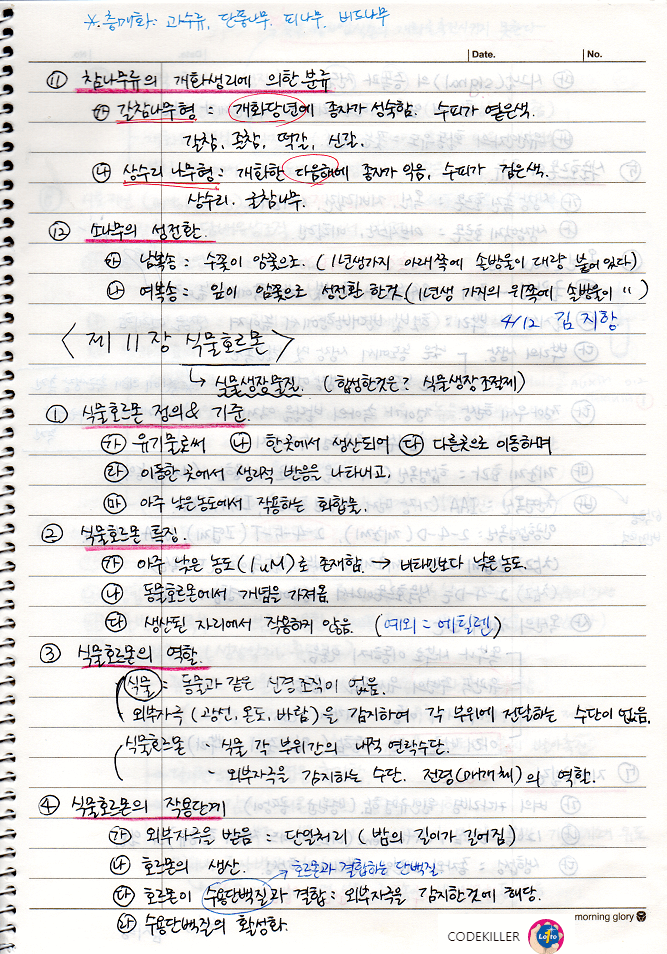 ※. 충매화: 과수류, 단풍나무, 피나무, 버드나무
Date. No.
⑪ 참나무류의 개화생리에 의한 분류
㉮ 갈참나무형 : 개화당년에 종자가 성숙함. 수피가 옅은색.
갈참, 졸참, 떡갈, 신갈.
㉯ 상수리 나무형 : 개화한 다음해에 종자가 익음, 수피가 검은색.
상수리. 굴참나무.
⑫ 소나무의 성전환.
㉮ 남복송 : 수꽃이 암꽃으로. (1년생가지 아래쪽에 솔방울이 대량 붙어있다)
㉯ 여복송 : 잎이 암꽃으로 성전환 한것 (1년생 가지의 위쪽에 솔방울이 〃)
4/12 김지항
<제 11장 식물호르몬>
↳ 식물생장물질. (합성한것은 : 식물생장조절제)
① 식물호르몬 정의 & 기준.
㉮ 유기물로써 ㉯ 한곳에서 생산되어 ㉰ 다른곳으로 이동하며
㉱ 이동한 곳에서 생리적 반응을 나타내고,
㉲ 아주 낮은농도에서 작용하는 화합물.
② 식물호르몬 특징.
㉮ 아주 낮은 농도(1uM)로 존재함. → 비타민보다 낮은농도.
㉯ 동물호르몬에서 개념을 가져옴.
㉰ 생산된 자리에서 작용하지 않음. (예외 = 에틸렌)
③ 식물호르몬의 역할.
식물 : 동물과 같은 신경조직이 없음.
외부자극 (광선, 온도, 바람)을 감지하여 각 부위에 전달하는 수단이 없음.
식물호르몬 - 식물 각 부위간의 내적 연락수단.
- 외부자극을 감지하는 수단. 전령(매개체)의 역할.
④ 식물호르몬의 작용단계
㉮ 외부자극을 받음 : 단일처리 (밤의 길이가 길어짐)
㉯ 호르몬의 생산. → 호르몬과 결합하는 단백질
㉰ 호르몬이 수용단백질과 결합 : 외부자극을 감지한것에 해당.
㉱ 수용단백질의 활성화.
morning glory
CODEKILLER Lotto